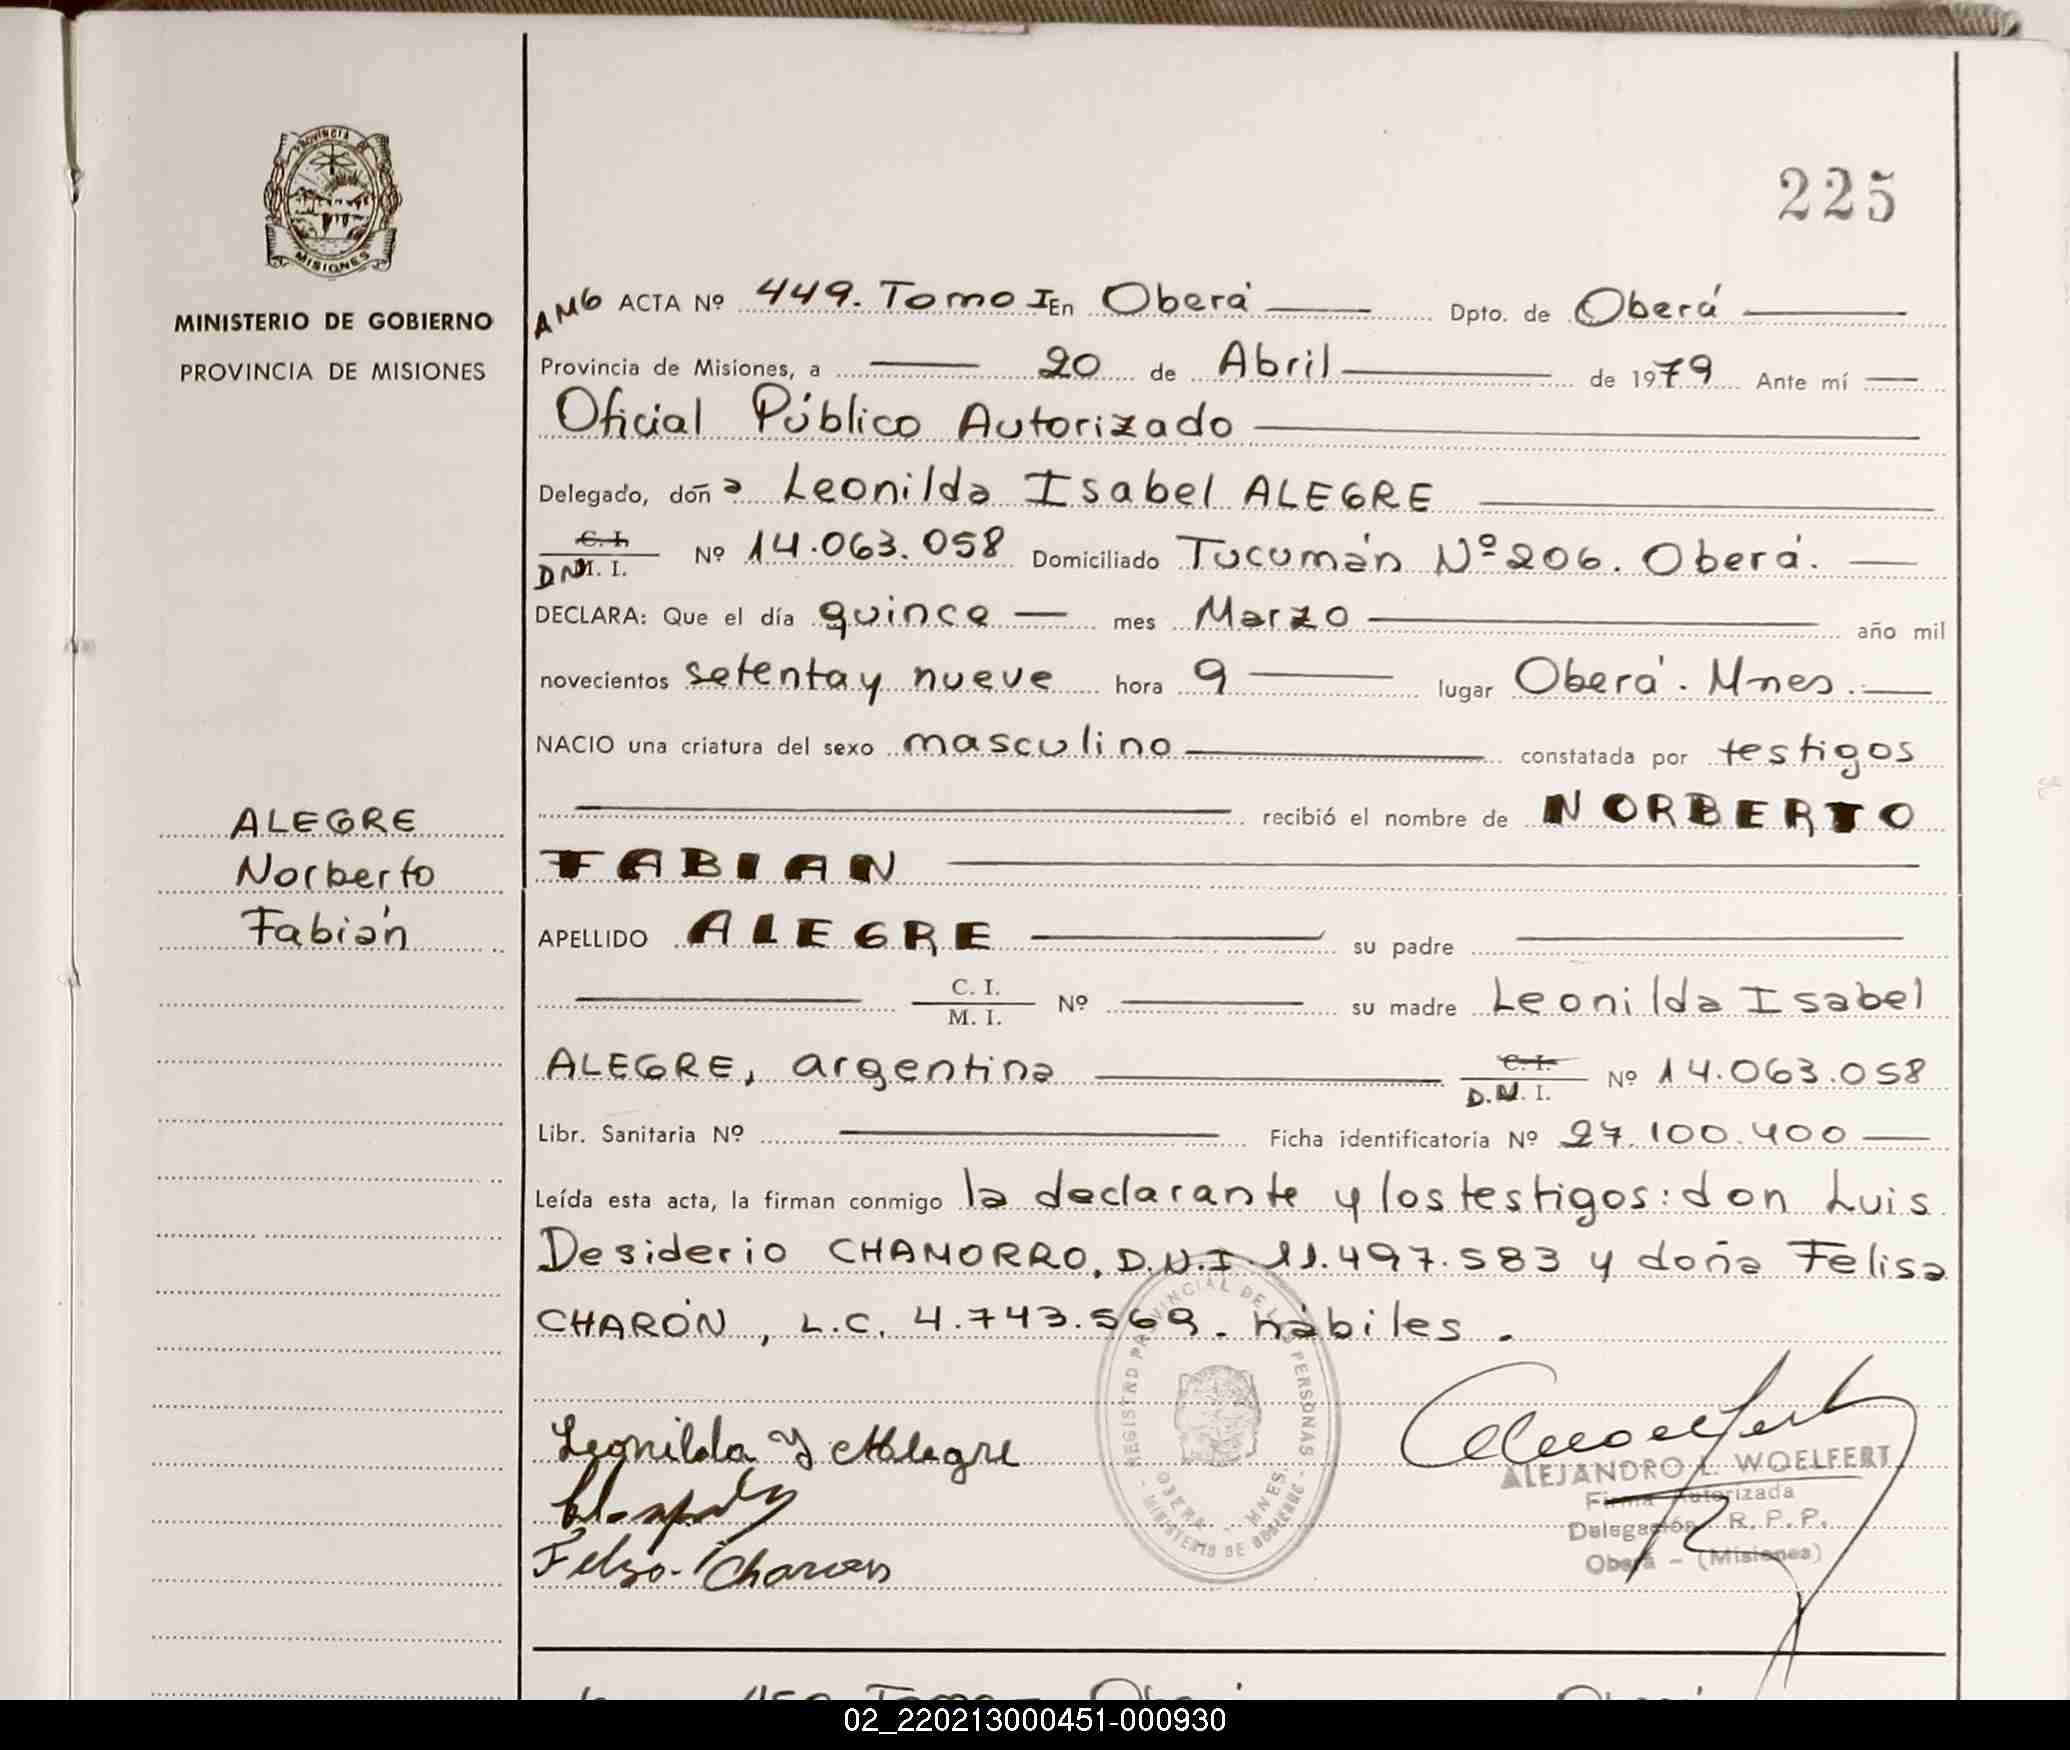 225
PROVINCIA
MISIONES
MINISTERIO DE GOBIERNO
PROVINCIA DE MISIONES
AMG ACTA Nº 449. Tomo I En Oberá Dpto. de Oberá
Provincia de Misiones, a 20 de Abril de 1979 Ante mí
Oficial Público Autorizado
Delegado, doña Leonilda Isabel ALEGRE
C. I.
DNI M. I. Nº 14.063.058 Domiciliado Tucumán Nº 206. Oberá.
DECLARA: Que el día quince mes Marzo año mil
novecientos setenta y nueve hora 9 lugar Oberá. Mnes.
NACIO una criatura del sexo masculino constatada por testigos
recibió el nombre de NORBERTO
FABIAN
ALEGRE
Norberto
Fabián
APELLIDO ALEGRE su padre
C. I.
M. I. Nº su madre Leonilda Isabel
ALEGRE, argentina C. I. D.N. I. Nº 14.063.058
Libr. Sanitaria Nº Ficha identificatoria Nº 27.100.400
Leída esta acta, la firman conmigo la declarante y los testigos: don Luis
Desiderio CHAMORRO, D.N.I. 11.497.583 y doña Felisa
CHARÓN, L.C. 4.743.569. hábiles.
REGISTRO PROVINCIAL DE LAS PERSONAS
OBERA - MNES
MINISTERIO DE GOBIERNO
Leonilda Y Alegre
ALEJANDRO L. WOELFERT
Firma Autorizada
Delegación R. P. P.
Oberá - (Misiones)
450 Tomo
02_220213000451-000930